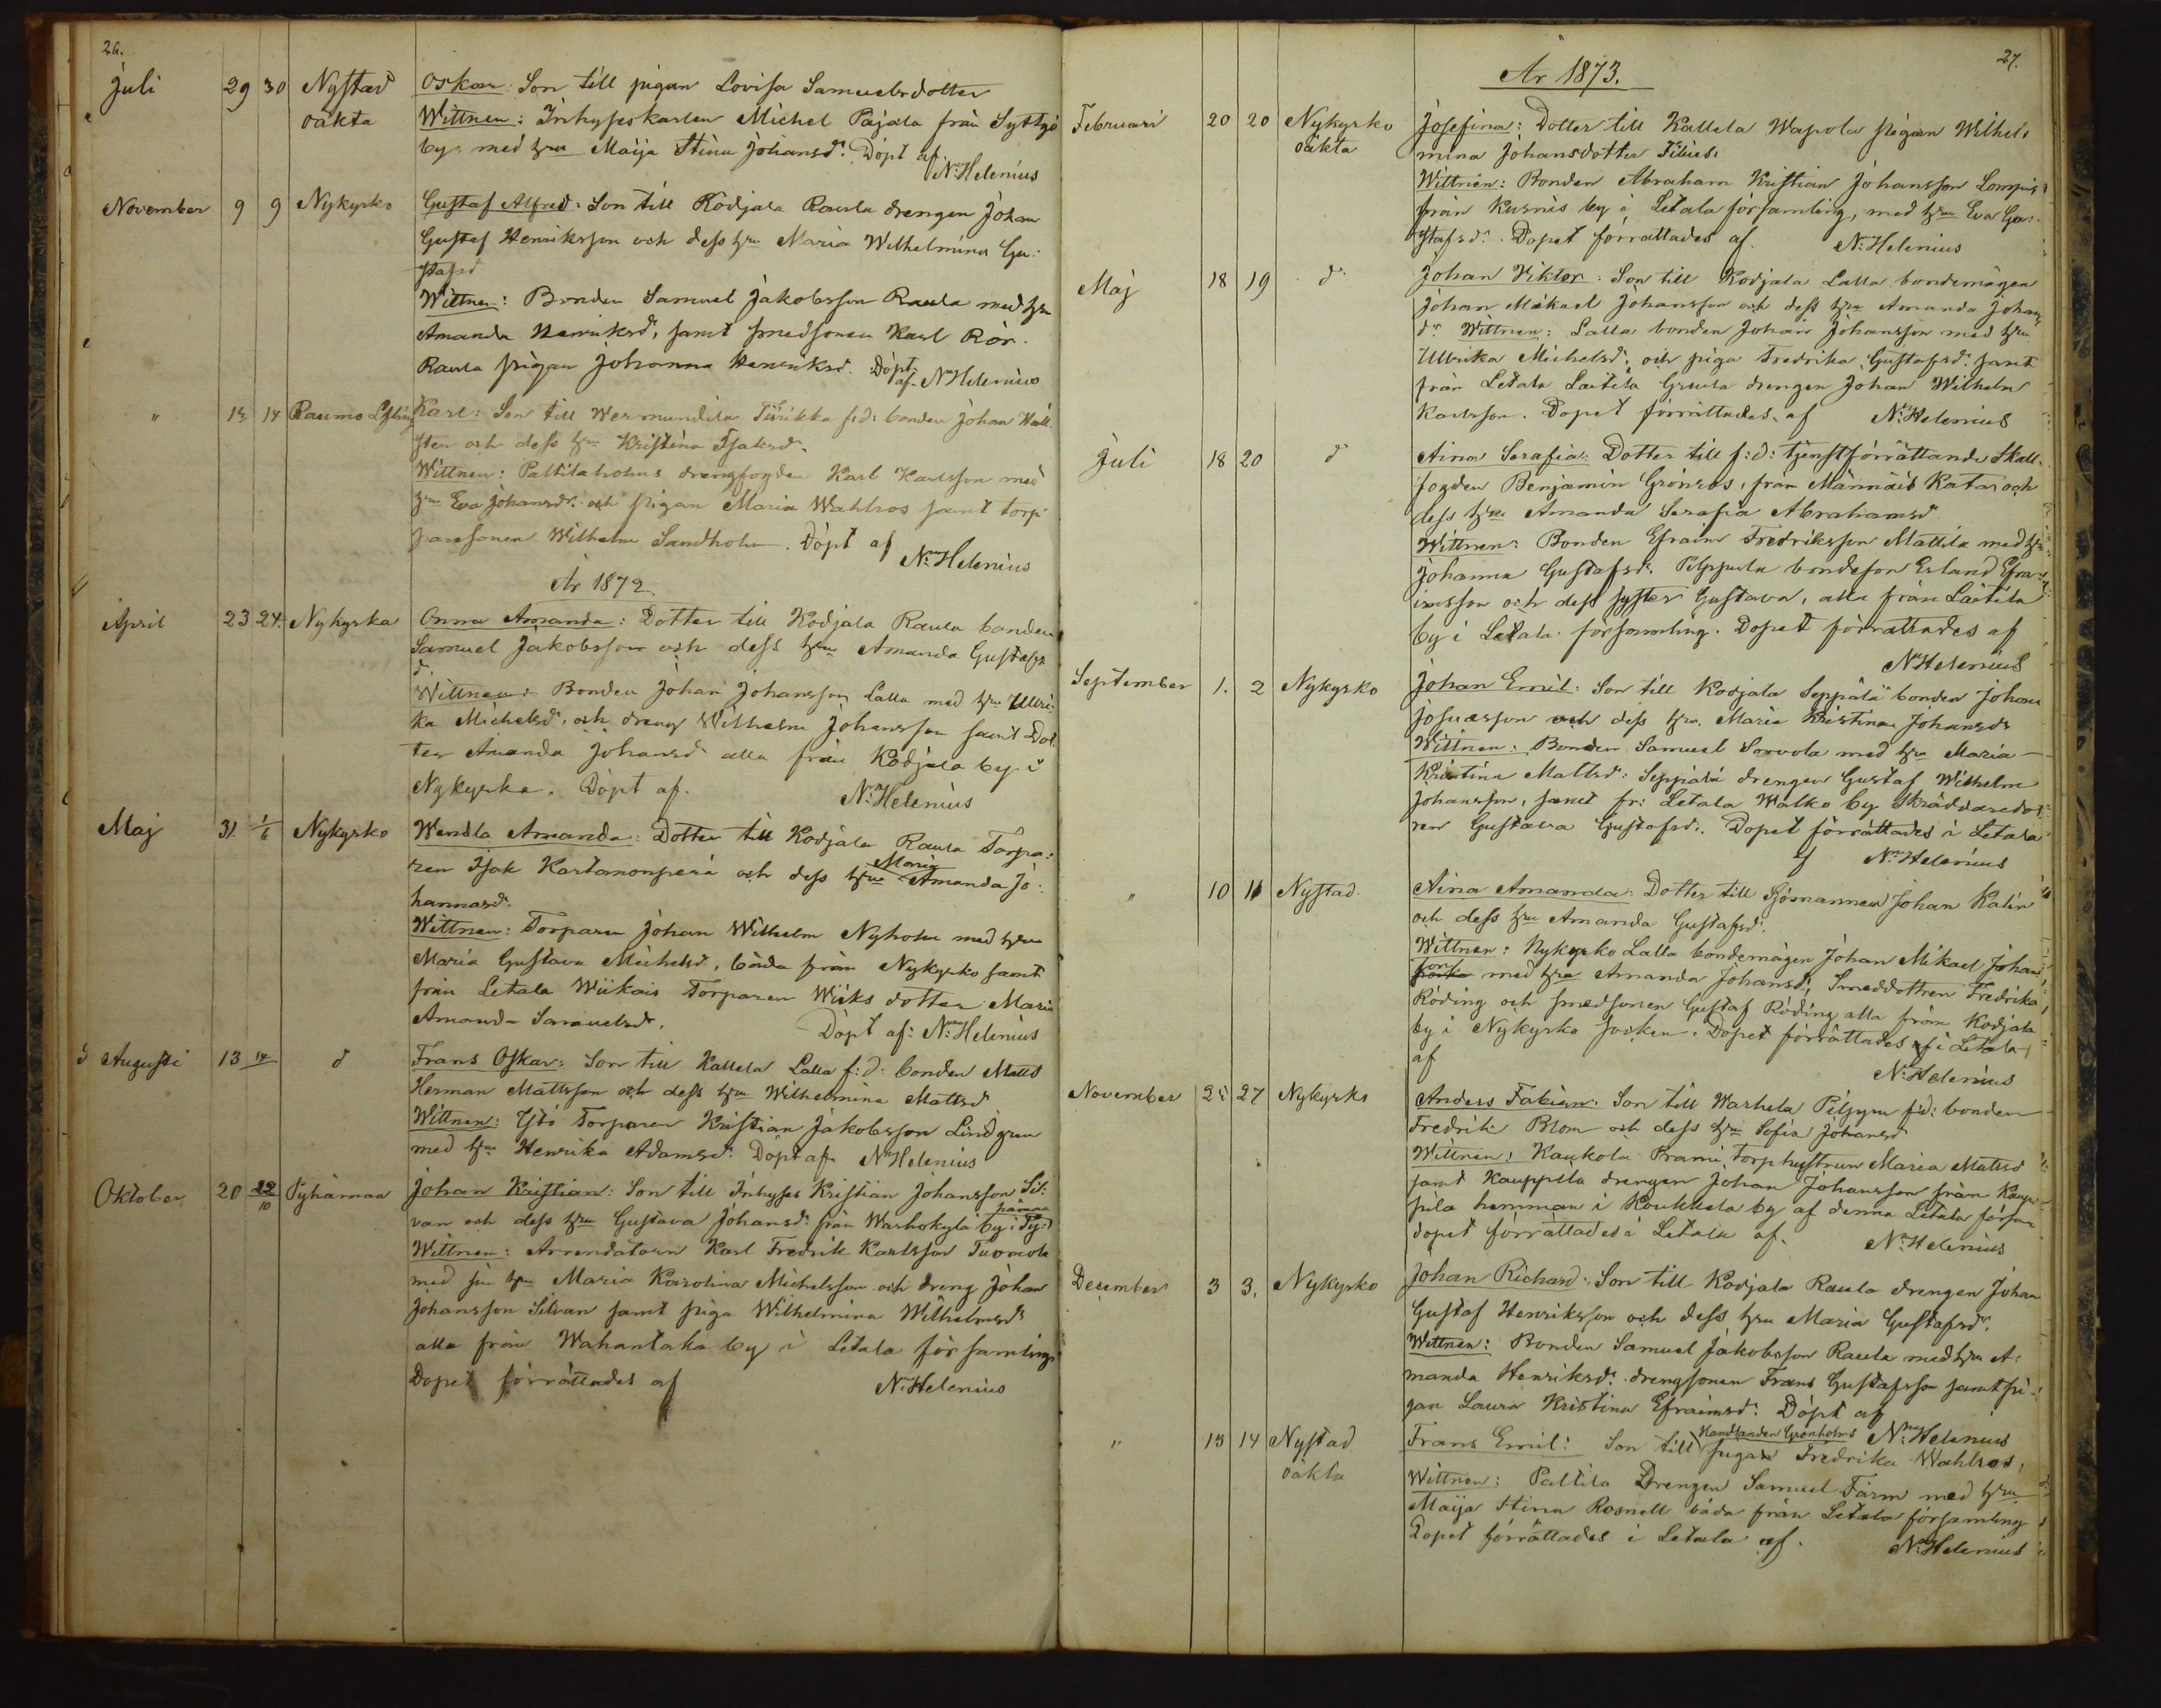 26.
Juli 29 30 Nystad oäkta
Oskar: Son till pigan Lovisa Samuelsdotter
Wittnen: Inhyseskarlen Michel Pajala från Syttyä
by med hru Maija Stina Johansdr. Döpt af.
N. Helenius
November 9 9 Nykyrko
Gustaf Alfred: Son till Kodjala Raula drengen Johan
Gustaf Henriksson och dess hru Maria Wilhelmina Gu-
stafsd
Wittnen: Bonden Samuel Jakobsson Raula med hru
Amanda Henriksdr, samt smedsonen Karl Rör.
Raula pigan Johanna Henriksd. Döpt
af. N. Helenius
" 14 Raumo
Karl: Son till Wermundila f:d: bonden Johan Hall-
sten och dess hru Kristina Isaksdr.
Wittnen: Palttilaholms drengfogden Karl Karlsson med
hru Eva Johansdr. och pigan Maria Wahlros samt torp-
paresonen Wilhelm Sandholm. Döpt af
N. Helenius
År 1872.
April 23 24. Nykyrka
Anna Amanda: Dotter till Kodjala Raula bonden
Samuel Jakobsson och dess hru Amanda Gustafs
d.
Wittnen: Bonden Johan Johansson Lalla med hru Ulri-
ka Michelsd. och dreng Wilhelm Johansson samt Dot-
ter Amanda Johansd alla från Kodjala by i
Nykyrka. Döpt af.
N. Helenius
Maj 31. 1/6 Nykyrko
Wendla Amanda: Dotter till Kodjala Raula Torpa-
ren Isak Kartanonperä och dess hru Maria Amanda Jo-
hannasd.
Wittnen: Torparen Johan Wilhelm Nyholm med hru
Maria Gustava Michelsd, båda från Nykyrko samt
från Letala Wiikais Torparen Wiiks dotter Maria
Amanda Samuelsdr.
Döpt af: N. Helenius
Augusti 13 14 d
Frans Oskar: Son till Kallela Lalla f:d: bonden Matts
Herman Mattsson och dess hru Wilhelmina Mattsd
Wittnen: Torparen Kristian Jakobsson Lindgren
med hru Henrika Adamsd. Döpt af. N. Helenius
Oktober 20 22/10 Pyhämaa
Johan Kristian: Son till Inhyses Kristian Johansson Sil-
van och dess hru Gustava Johansd. från Warhokylä by i Py-
hämaa
Wittnen: Arrendatorn Karl Fredrik Karlsson Tuomola
med sin hru Maria Karolina Michelsson och dreng Johan
Johansson Silvan samt piga Wilhelmina Wilhelmsdr
alla från Wahantaka by i Letala församling
Dopet förrättades af
N. Helenius
27.
År 1873.
Februari 20 20 Nykyrko oäkta
Josefina: Dotter till Kallela Wapola pigan Wilhel-
mina Johansdotter
Wittnen: Bonden Abraham Kristian Johansson
från Kusnis by i Letala församling, med hru Eva Gu-
stafsdr. Dopet förrättades af. N. Helenius
Maj 18 19 d
Johan Viktor: Son till Kodjala Lalla bondemågen
Johan Mikael Johansson och dess hru Amanda Johans
dr Wittnen: Lalla bonden Johan Johansson med hru
Ullrika Michelsd. och piga Fredrika Gustafsd. samt
från Letala Laitila drengen Johan Wilhelm
Karlsson. Dopet förrättades af N. Helenius
Juli 18 20 d
Aina Serafia: Dotter till f:d: tjenstförrättande Skall-
fogden Benjamin Grönros, från Männäis Kataroch
dess hru Amanda Serafia Abrahamsd
Wittnen: Bonden Efraim Fredriksson Mattila med hru
Johanna Gustafsd. bondeson Erland Efra-
imsson och dess syster Gustava, alla från Laitila
by i Letala församling. Dopet förrättades af
N. Helenius
September 1. 2 Nykyrko
Johan Emil: Son till Kodjala Seppälä bonden Johan
Josuasson och dess hru. Maria Kristina Johansdr
Wittnen: Bonden Samuel Sorvola med hru Maria
Kristina Mattsd: Seppälä drengen Gustaf Wilhelm
Johansson, samt fr: Letala Walko by Skräddaredot-
ren Gustava Gustafsd. Dopet förrättades i Letala
af N. Helenius
" 10 11 Nystad.
Aina Amanda: Dotter till Sjömannen Johan Kalin
och dess hru Amanda Gustafsd.
Wittnen: Nykyrko Lalla bondemågen Johan Mikael Johans
son med hru Amanda Johansd, Smeddottren Fredrika
Röding och smedsonen Gustaf Röding alla från Kodjala
by i Nykyrko socken. Dopet förrättades i Letala
af
N. Helenius
November 25 27 Nykyrko
Anders Fabian: Son till Warhela Pilgrm f:d: bonden
Fredrik Blom och dess hru Sofia Johansd
Wittnen: Kaukola Prami torphustrun Maria Mattsd
samt Kauppila drengen Johan Johansson från Kaup-
pila hemman i Koukkela by af denna Letala försam
dopet förrättades i Letala af.
N. Helenius
December 3 3. Nykyrko
Johan Richard: Son till Kodjala Raula drengen Johan
Gustaf Henriksson och dess hru Maria Gustafsdr.
Wittnen: Bonden Samuel Jakobsson Raula med hru A-
manda Henriksdr. drengsonen Frans Gustafsson samt pi-
gan Laura Kristina Efraimsd. Döpt af
N. Helenius
" 13 14 Nystad oäkta
Frans Emil: Son till Handlanden Grönholms pigan Fredrika Wahlros,
Wittnen: Palttila Drengen Samuel Färm med hru
Maija Stina Rosnell båda från Letala församling
Dopet förrättades i Letala af.
N. Helenius